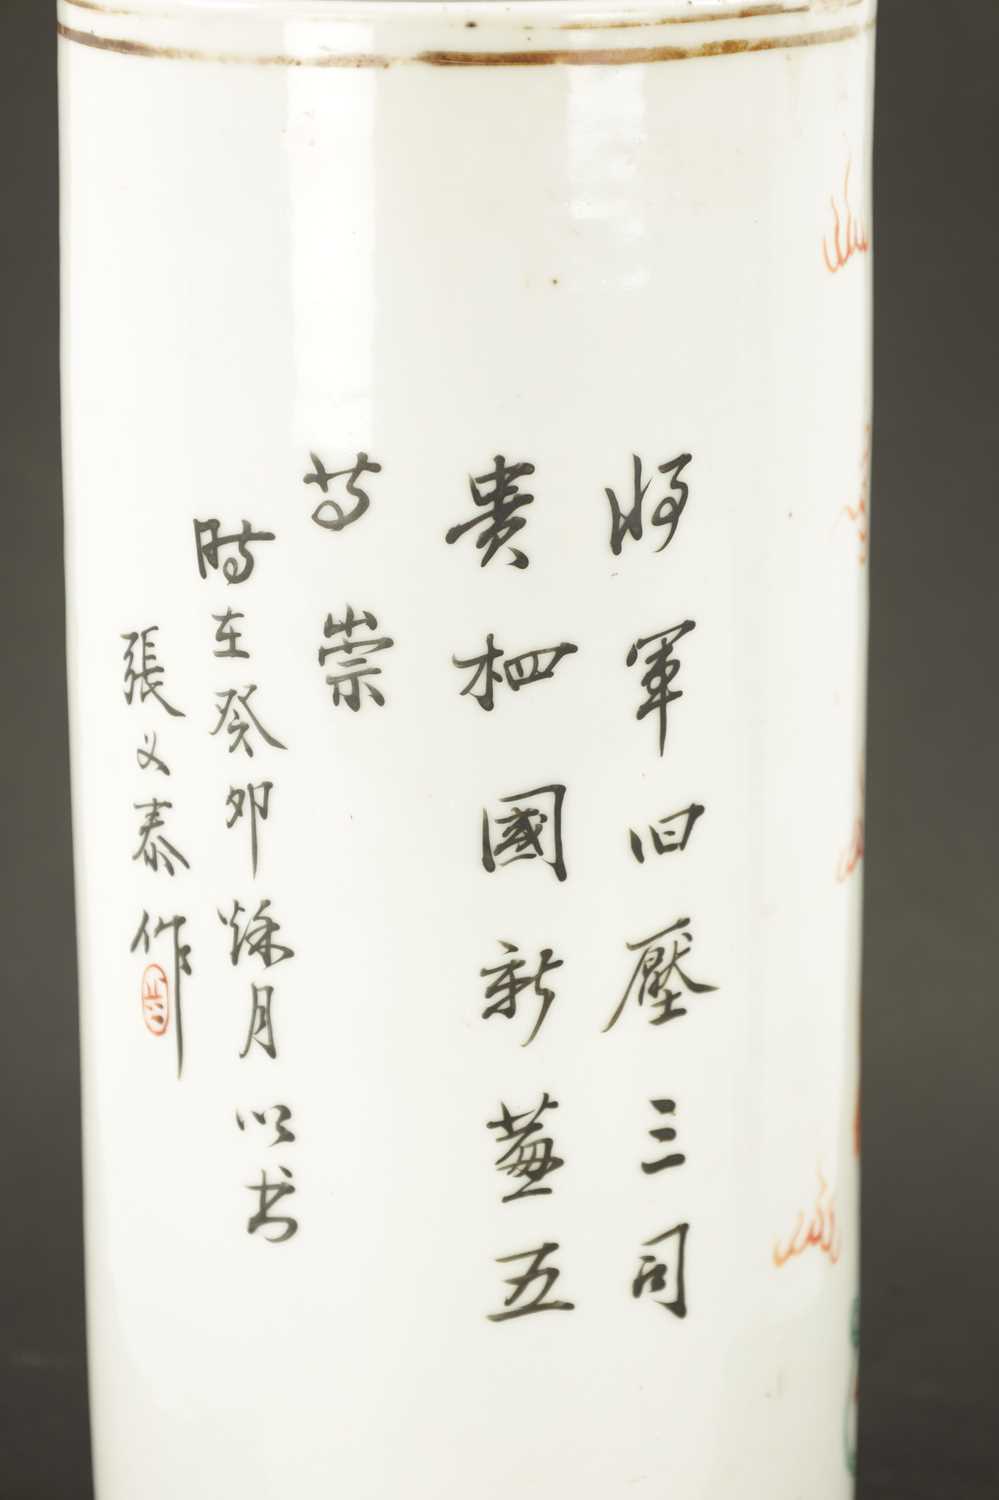 將軍旧壓三司
貴相國新蕪五
等崇
時在癸卯秋月以书
張义泰作